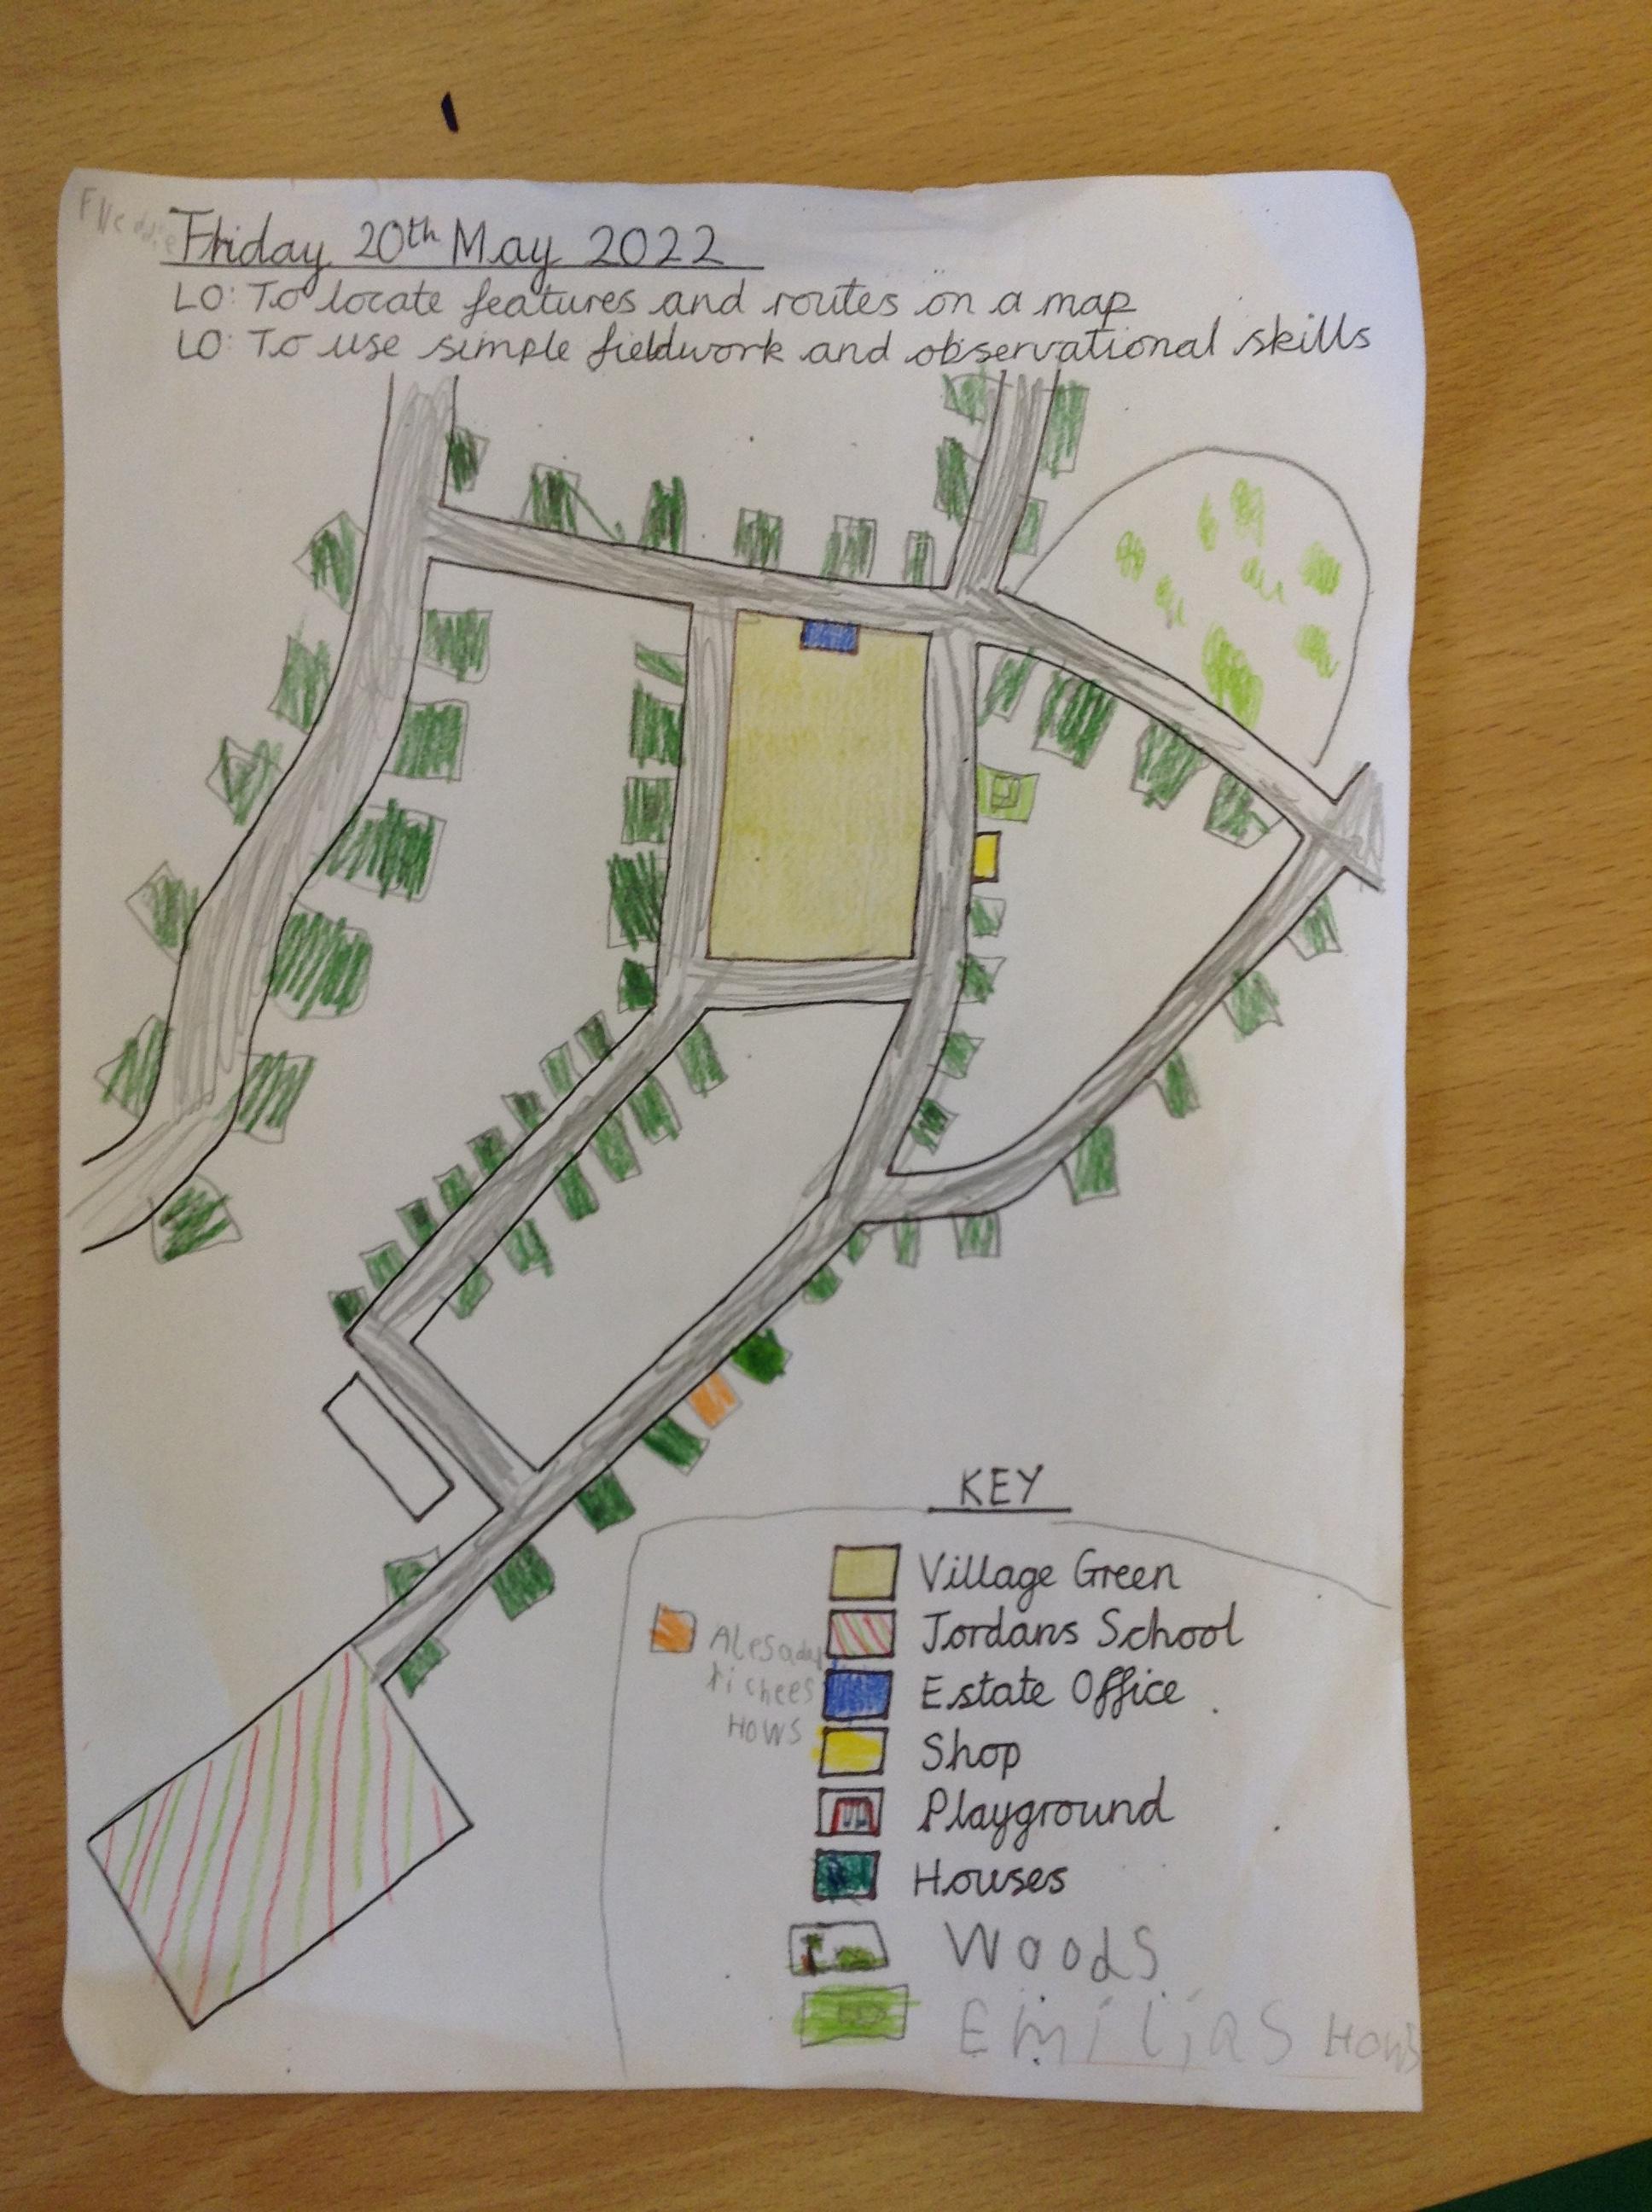 Friday 20th May 2022
LO: To locate features and routes on a map
LO: To use simple fieldwork and observational skills
KEY
Village Green
Jordans School
Estate Office
Shop
Playground
Houses
Woods
Emilias Hows
HOWS